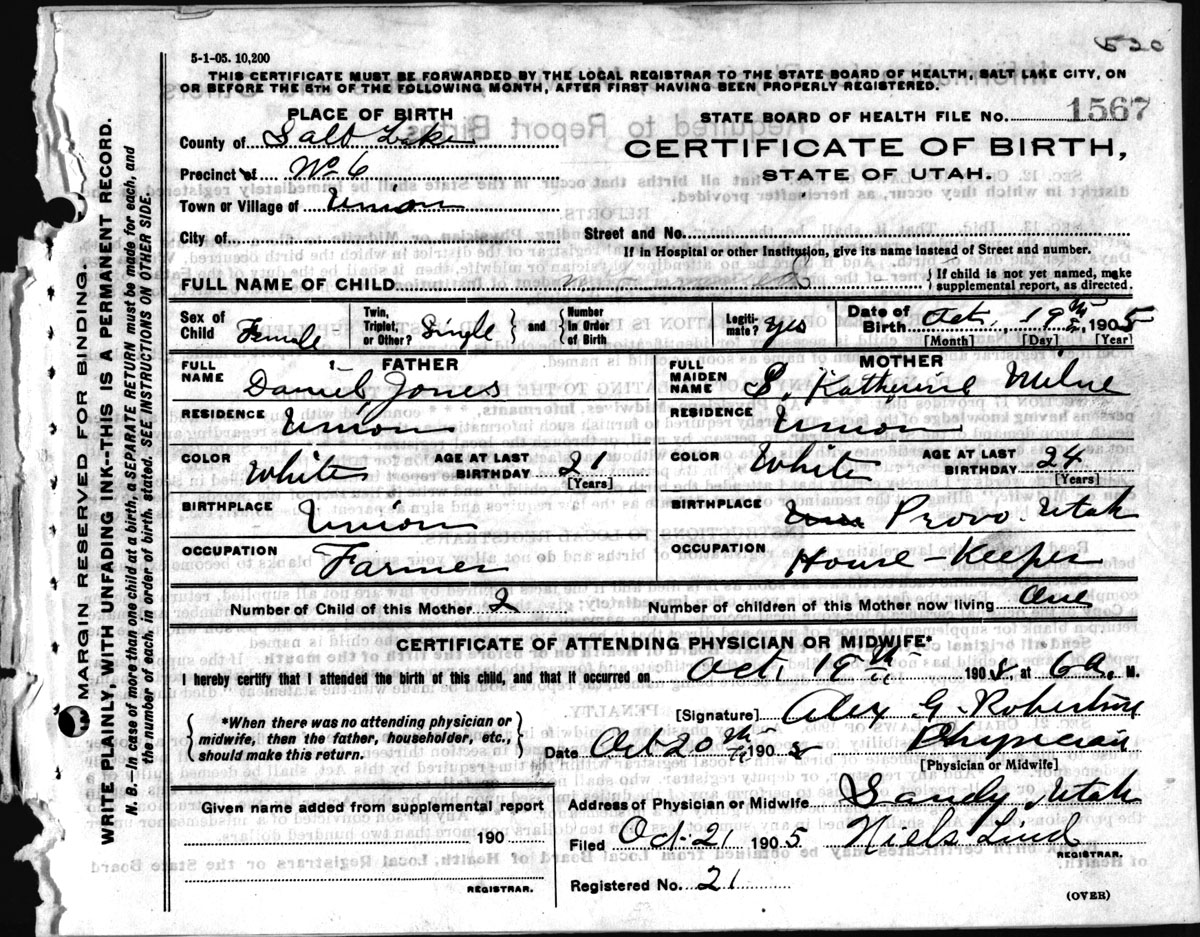 520
5-1-05. 10,200
THIS CERTIFICATE MUST BE FORWARDED BY THE LOCAL REGISTRAR TO THE STATE BOARD OF HEALTH, SALT LAKE CITY, ON
OR BEFORE THE 5TH OF THE FOLLOWING MONTH, AFTER FIRST HAVING BEEN PROPERLY REGISTERED.
PLACE OF BIRTH
STATE BOARD OF HEALTH FILE NO. 1567
County of Salt Lake
CERTIFICATE OF BIRTH,
Precinct of No 6
STATE OF UTAH.
Town or Village of Union
City of
Street and No.
If in Hospital or other Institution, give its name instead of Street and number.
FULL NAME OF CHILD
If child is not yet named, make
supplemental report, as directed.
Sex of Child Female
Twin, Triplet, or Other? Single and Number In Order of Birth
Legitimate? yes
Date of Birth Oct. 19th, 1905
[Month] [Day] [Year]
FATHER
FULL NAME Daniel Jones
RESIDENCE Union
COLOR White AGE AT LAST BIRTHDAY 21
[Years]
BIRTHPLACE Union
OCCUPATION Farmer
MOTHER
FULL MAIDEN NAME S. Katherine Milne
RESIDENCE Union
COLOR White AGE AT LAST BIRTHDAY 24
[Years]
BIRTHPLACE Provo Utah
OCCUPATION House-Keeper
Number of Child of this Mother 2
Number of children of this Mother now living One
CERTIFICATE OF ATTENDING PHYSICIAN OR MIDWIFE*
I hereby certify that I attended the birth of this child, and that it occurred on Oct. 19th 1905, at 6 a. M.
*When there was no attending physician or
midwife, then the father, householder, etc.,
should make this return.
[Signature] Alex G. Robertson
Date Oct 20th 1905 Physician
[Physician or Midwife]
Given name added from supplemental report
190
REGISTRAR.
Address of Physician or Midwife Sandy Utah
Filed Oct. 21 1905 Niels Lind
REGISTRAR.
Registered No. 21
(OVER)
MARGIN RESERVED FOR BINDING.
WRITE PLAINLY, WITH UNFADING INK--THIS IS A PERMANENT RECORD.
N. B.--In case of more than one child at a birth, a SEPARATE RETURN must be made for each, and
the number of each, in order of birth, stated. SEE INSTRUCTIONS ON OTHER SIDE.